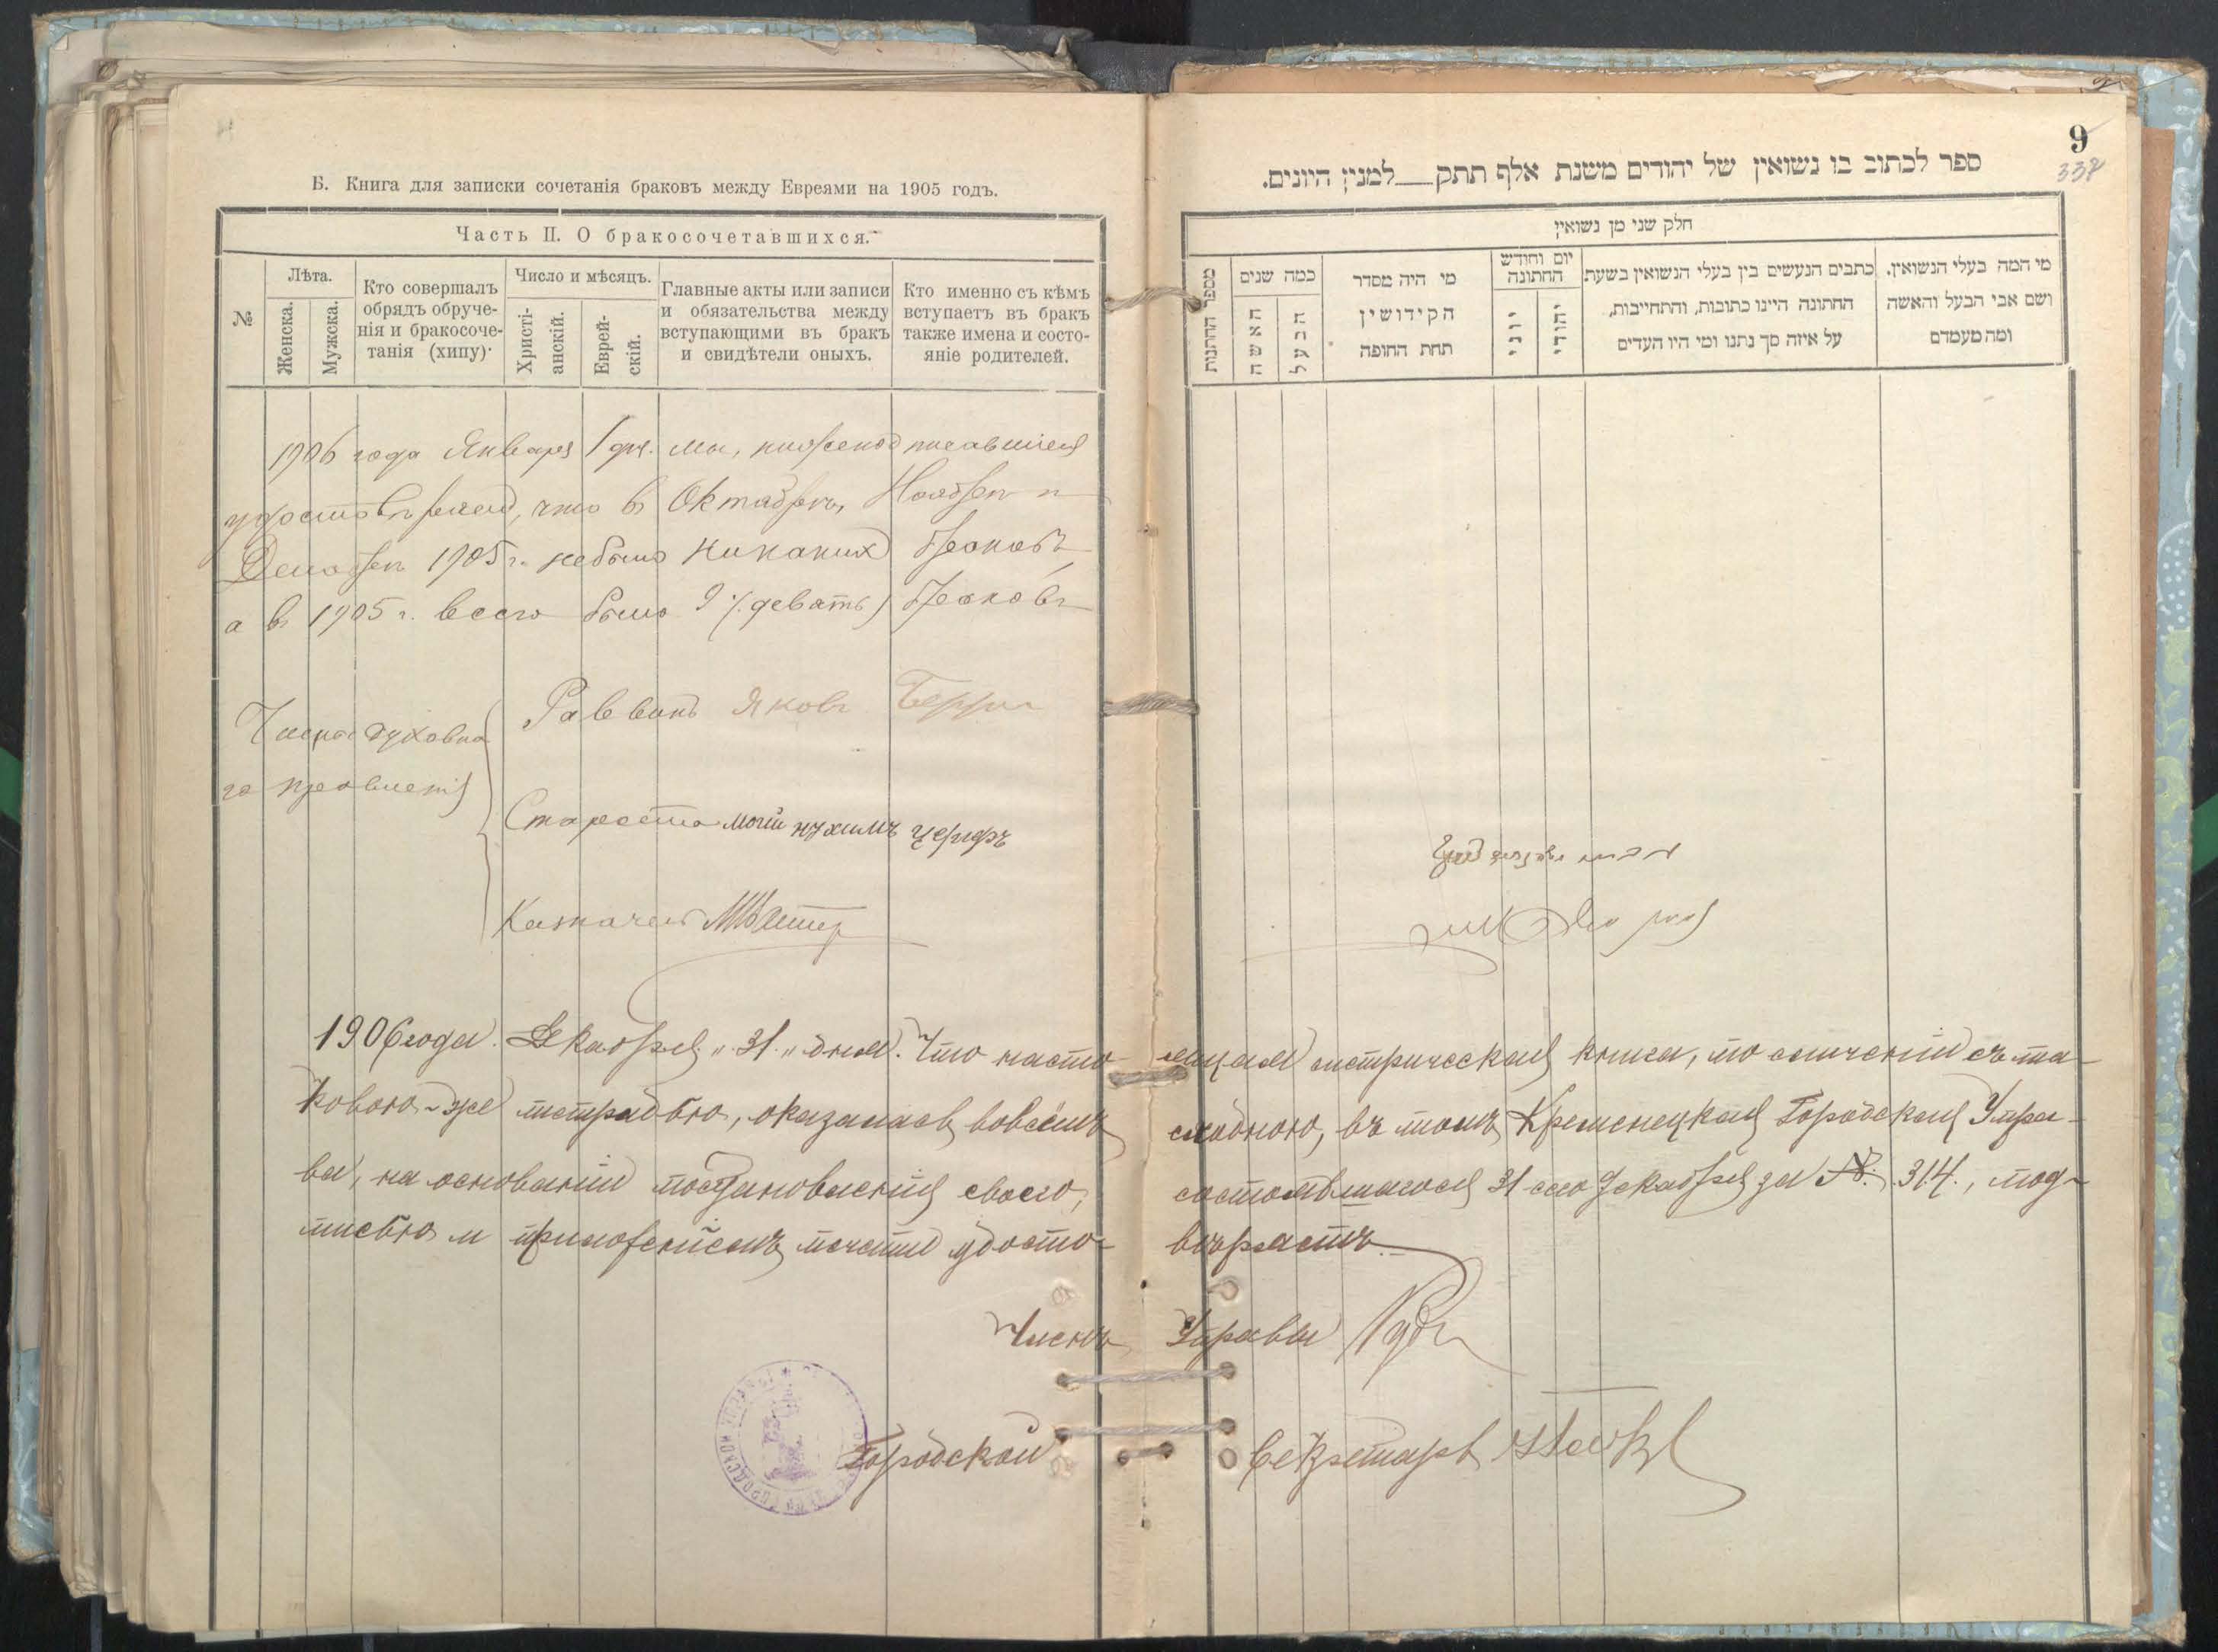 Б. Книга для записки сочетанія браковъ между Евреями на 1905 годъ.
Часть II. О бракосочетавшихся.
№
Лѣта.
Женска.
Мужска.
Кто совершалъ
обрядъ обруче-
нія и бракосоче-
танія (хипу)
Число и мѣсяцъ.
Христі-
анскій.
Еврей-
скій.
Главные акты или записи
и обязательства между
вступающими въ бракъ
и свидѣтели оныхъ.
Кто именно съ кѣмъ
вступаетъ въ бракъ
также имена и состо-
яніе родителей.
1906 года Января 1 дня. мы, нижеподписавшіеся
удостовѣряемъ, что въ Октябрѣ, Ноябрѣ и
Декабрѣ 1905 г. небыло никакихъ браковъ
а въ 1905 г. всего было 9 /девять/ браковъ
Члены духовна
го правленія
Раввинъ Яковъ
Староста нухимъ
Казначей
1906 года Декабря „31„ дня. Что насто-
ящая метрическая книга, по сличеніи съ та-
ковою-же тетрадью, оказалась вовсемъ
сходною, въ томъ Кременецкая Городская Упра-
ва, на основаніи постановленія своего,
состоявшагося 31 сего Декабря за №. 314., под-
писью и приложеніемъ печати удосто-
вѣряетъ.
Членъ Управы
Городской Секретарь
9
338
ספר לכתוב בו נשואין של יהודים משנת אלף תתק__למנין היונים.
חלק שני מן נשואין
מספר החתנות
כמה שנים
האשה
הבעל
מי היה מסדר
הקידושין
תחת החופה
יום וחודש
החתונה
יוני
יהודי
כתבים הנעשים בין בעלי הנשואין בשעת
החתונה היינו כתובות, והתחייבות,
על איזה סך נתנו ומי היו העדים
מי המה בעלי הנשואין,
ושם אבי הבעל והאשה
ומה מעמדם